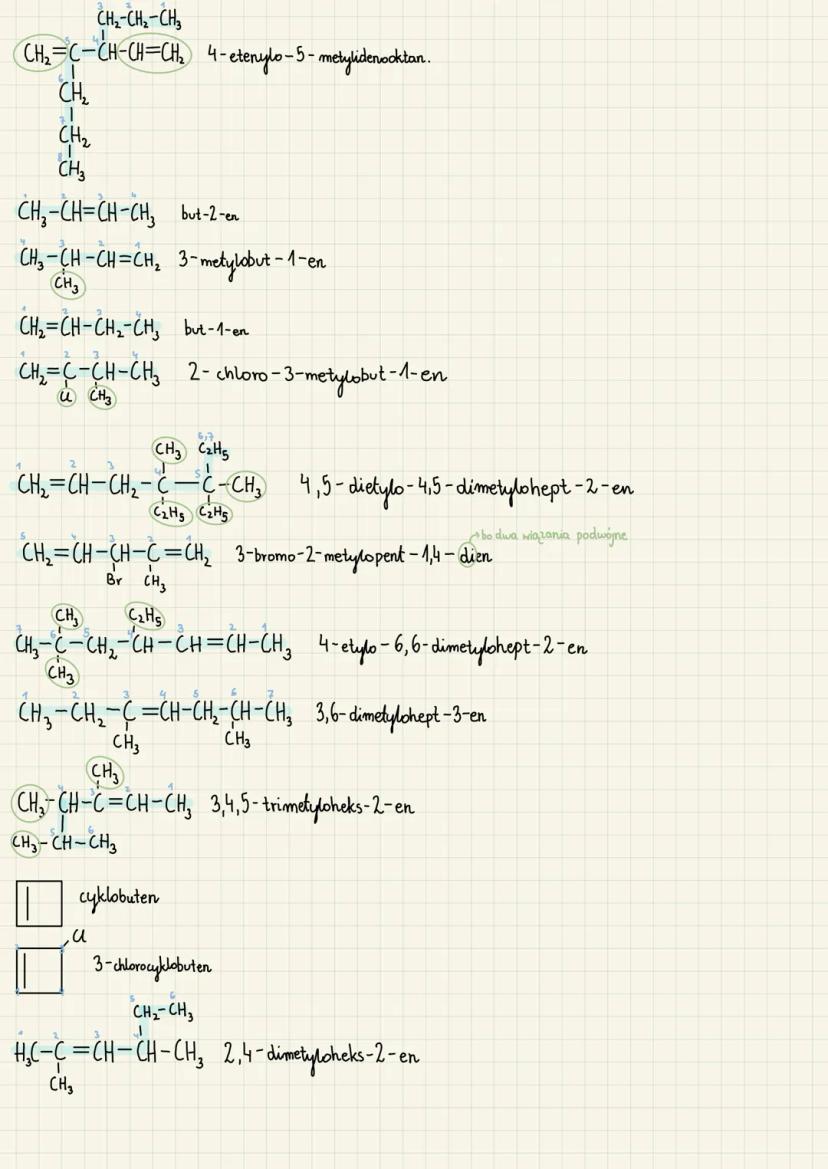 3 2 1
CH₂-CH₂-CH₃
5 4
CH₂=C-CH-CH=CH₂ 4-etenylo-5-metylidenooktan.
6
CH₂
7
CH₂
8
CH₃
1 2 3 4
CH₃-CH=CH-CH₃ but-2-en
4 3 2 1
CH₃-CH-CH=CH₂ 3-metylobut-1-en
CH₃
1 2 3 4
CH₂=CH-CH₂-CH₃ but-1-en
1 2 3 4
CH₂=C-CH-CH₃ 2-chloro-3-metylobut-1-en
Cl CH₃
6,7
CH₃ C₂H₅
1 2 3 4 5
CH₂=CH-CH₂-C-C-CH₃ 4,5-dietylo-4,5-dimetylohept-2-en
C₂H₅ C₂H₅
bo dwa wiązania podwójne
5 4 3 2 1
CH₂=CH-CH-C=CH₂ 3-bromo-2-metylopent-1,4-dien
Br CH₃
CH₃ C₂H₅
7 6 5 4 3 2 1
CH₃-C-CH₂-CH-CH=CH-CH₃ 4-etylo-6,6-dimetylohept-2-en
CH₃
1 2 3 4 5 6 7
CH₃-CH₂-C=CH-CH₂-CH-CH₃ 3,6-dimetylohept-3-en
CH₃ CH₃
CH₃
4 3 2 1
CH₃-CH-C=CH-CH₃ 3,4,5-trimetyloheks-2-en
5 6
CH₃-CH-CH₃
cyklobuten
Cl
3-chlorocyklobuten
5 6
CH₂-CH₃
1 2 3 4
H₃C-C=CH-CH-CH₃ 2,4-dimetyloheks-2-en
CH₃